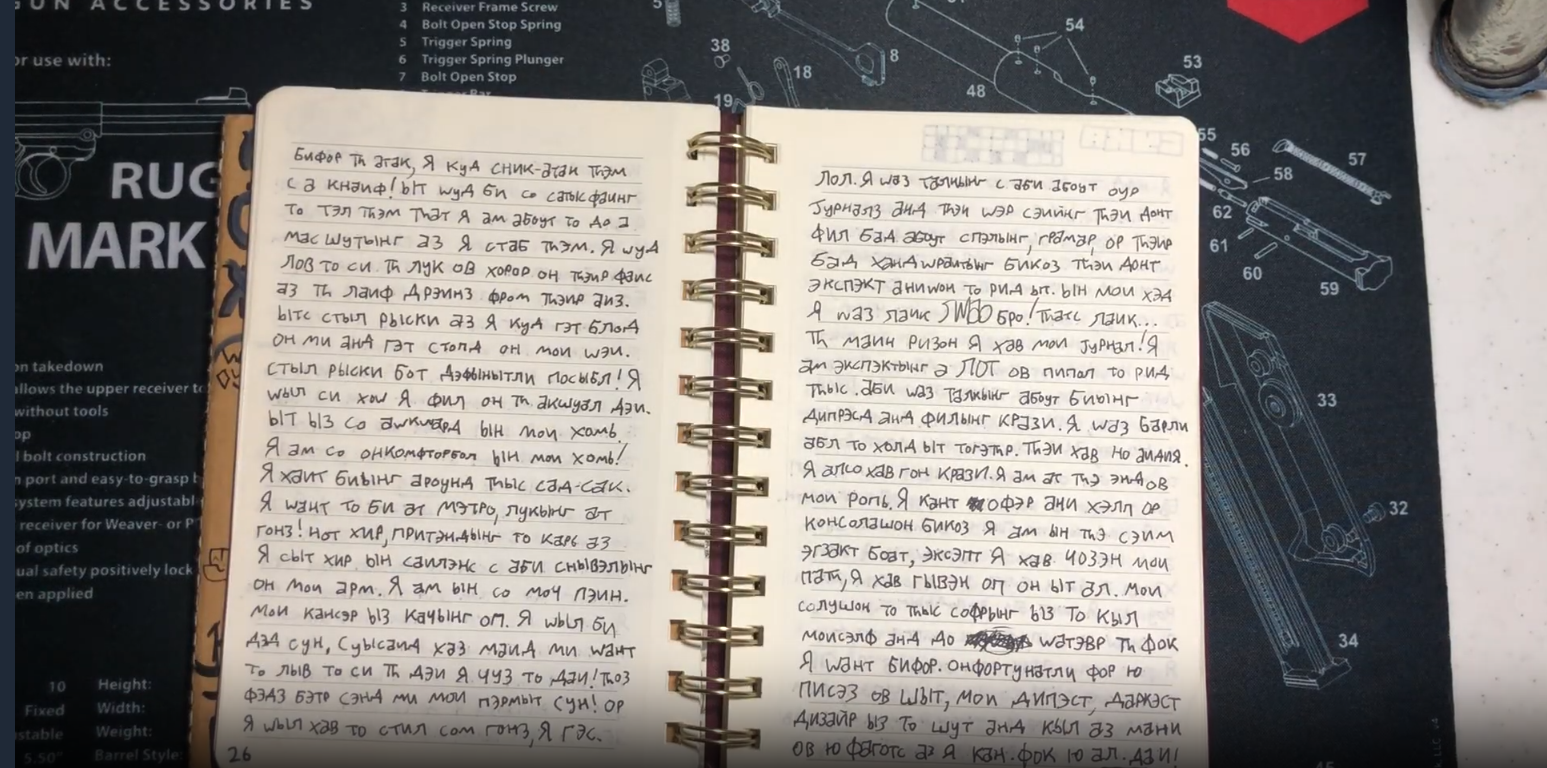 UN ACCESSORIES
or use with:
3 Receiver Frame Screw
4 Bolt Open Stop Spring
5 Trigger Spring
6 Trigger Spring Plunger
7 Bolt Open Stop
RUG
MARK
on takedown
allows the upper receiver to
without tools
op
l bolt construction
n port and easy-to-grasp
system features adjustabl
receiver for Weaver- or P
of optics
ual safety positively lock
en applied
10 Height:
Fixed Width:
Weight:
5.50" Barrel Style:
Бифор Тh атак, Я куд сник-атак Тhэм
с а кнаиф! ыт wуд би со сатысфаинг
то тэл Тhэм Тhат Я ам абоут то до а
мас шутынг аз Я стаб Тhэм. Я wуд
лов то си Тh лук ов хорор он Тhэир фаис
аз Тh лаиф дрэинз фром Тhэир аиз.
ытс стыл рыски аз Я куд гэт блод
он ми анд гэт стопд он мои wэи.
стыл рыски бот дэфынытли посыбл! Я
wыл си хоw Я фил он Тh акшуал дэи.
ыт ыз со аwкwард ын мои хомь.
Я ам со онкомфторбол ын мои хомь!
Я хаит биынг ароунд Тhыс сад-сак.
Я wант то би ат мэтро, лукынг ат
гонз! нот хир, притэндынг то карь аз
Я сыт хир ын саилэнс с аби снывэлынг
он мои арм. Я ам ын со моч пэин.
мои кансэр ыз качынг оп. Я wыл би
дэд сун, суысаид хаз маид ми wант
то лыв то си Тh дэи Я чуз то даи! Тhоз
фэдз бэтр сэнд ми мои пэрмыт сун! ор
Я wыл хав то стил сом гонз, Я гэс.
26
Лол. Я wаз талкынг с аби абоут оур
Jурналз анд Тhэи wэр сэиинг Тhэи донт
фил бад абоут спэлынг, грамар, ор Тhэир
бад хандwраитынг бикоз Тhэи донт
экспэкт аниwон то рид ыт. ын мои хэд
Я wаз лаик бро! Тhатс лаик...
Тh маин ризон Я хав мои Jурнал! Я
ам экспэктынг а ЛОТ ов пипол то рид
Тhыс. аби wаз талкынг абоут биынг
дипрэсд анд филынг крази. Я wаз барли
абл то холд ыт тогэтhр. Тhэи хав но аидиа.
Я алсо хав гон крази. Я ам ат Тhэ энд ов
мои ропь. Я кант офэр ани хэлп ор
консолашон бикоз Я ам ын Тhэ сэим
эгзакт боат, эксэпт Я хав чозэн мои
патh, Я хав гывэн оп он ыт ал. мои
солушон то Тhыс софрынг ыз то кыл
моисэлф анд до wатэвр Тh фок
Я wант бифор. онфортунатли фор ю
писэз ов шыт, мои дипэст, даркэст
дизайр ыз то шут анд кыл аз мани
ов ю фаготс аз Я кан. фок ю ал. даи!
38
19
18
8
48
54
53
55
56
57
58
62
61
60
59
33
32
34